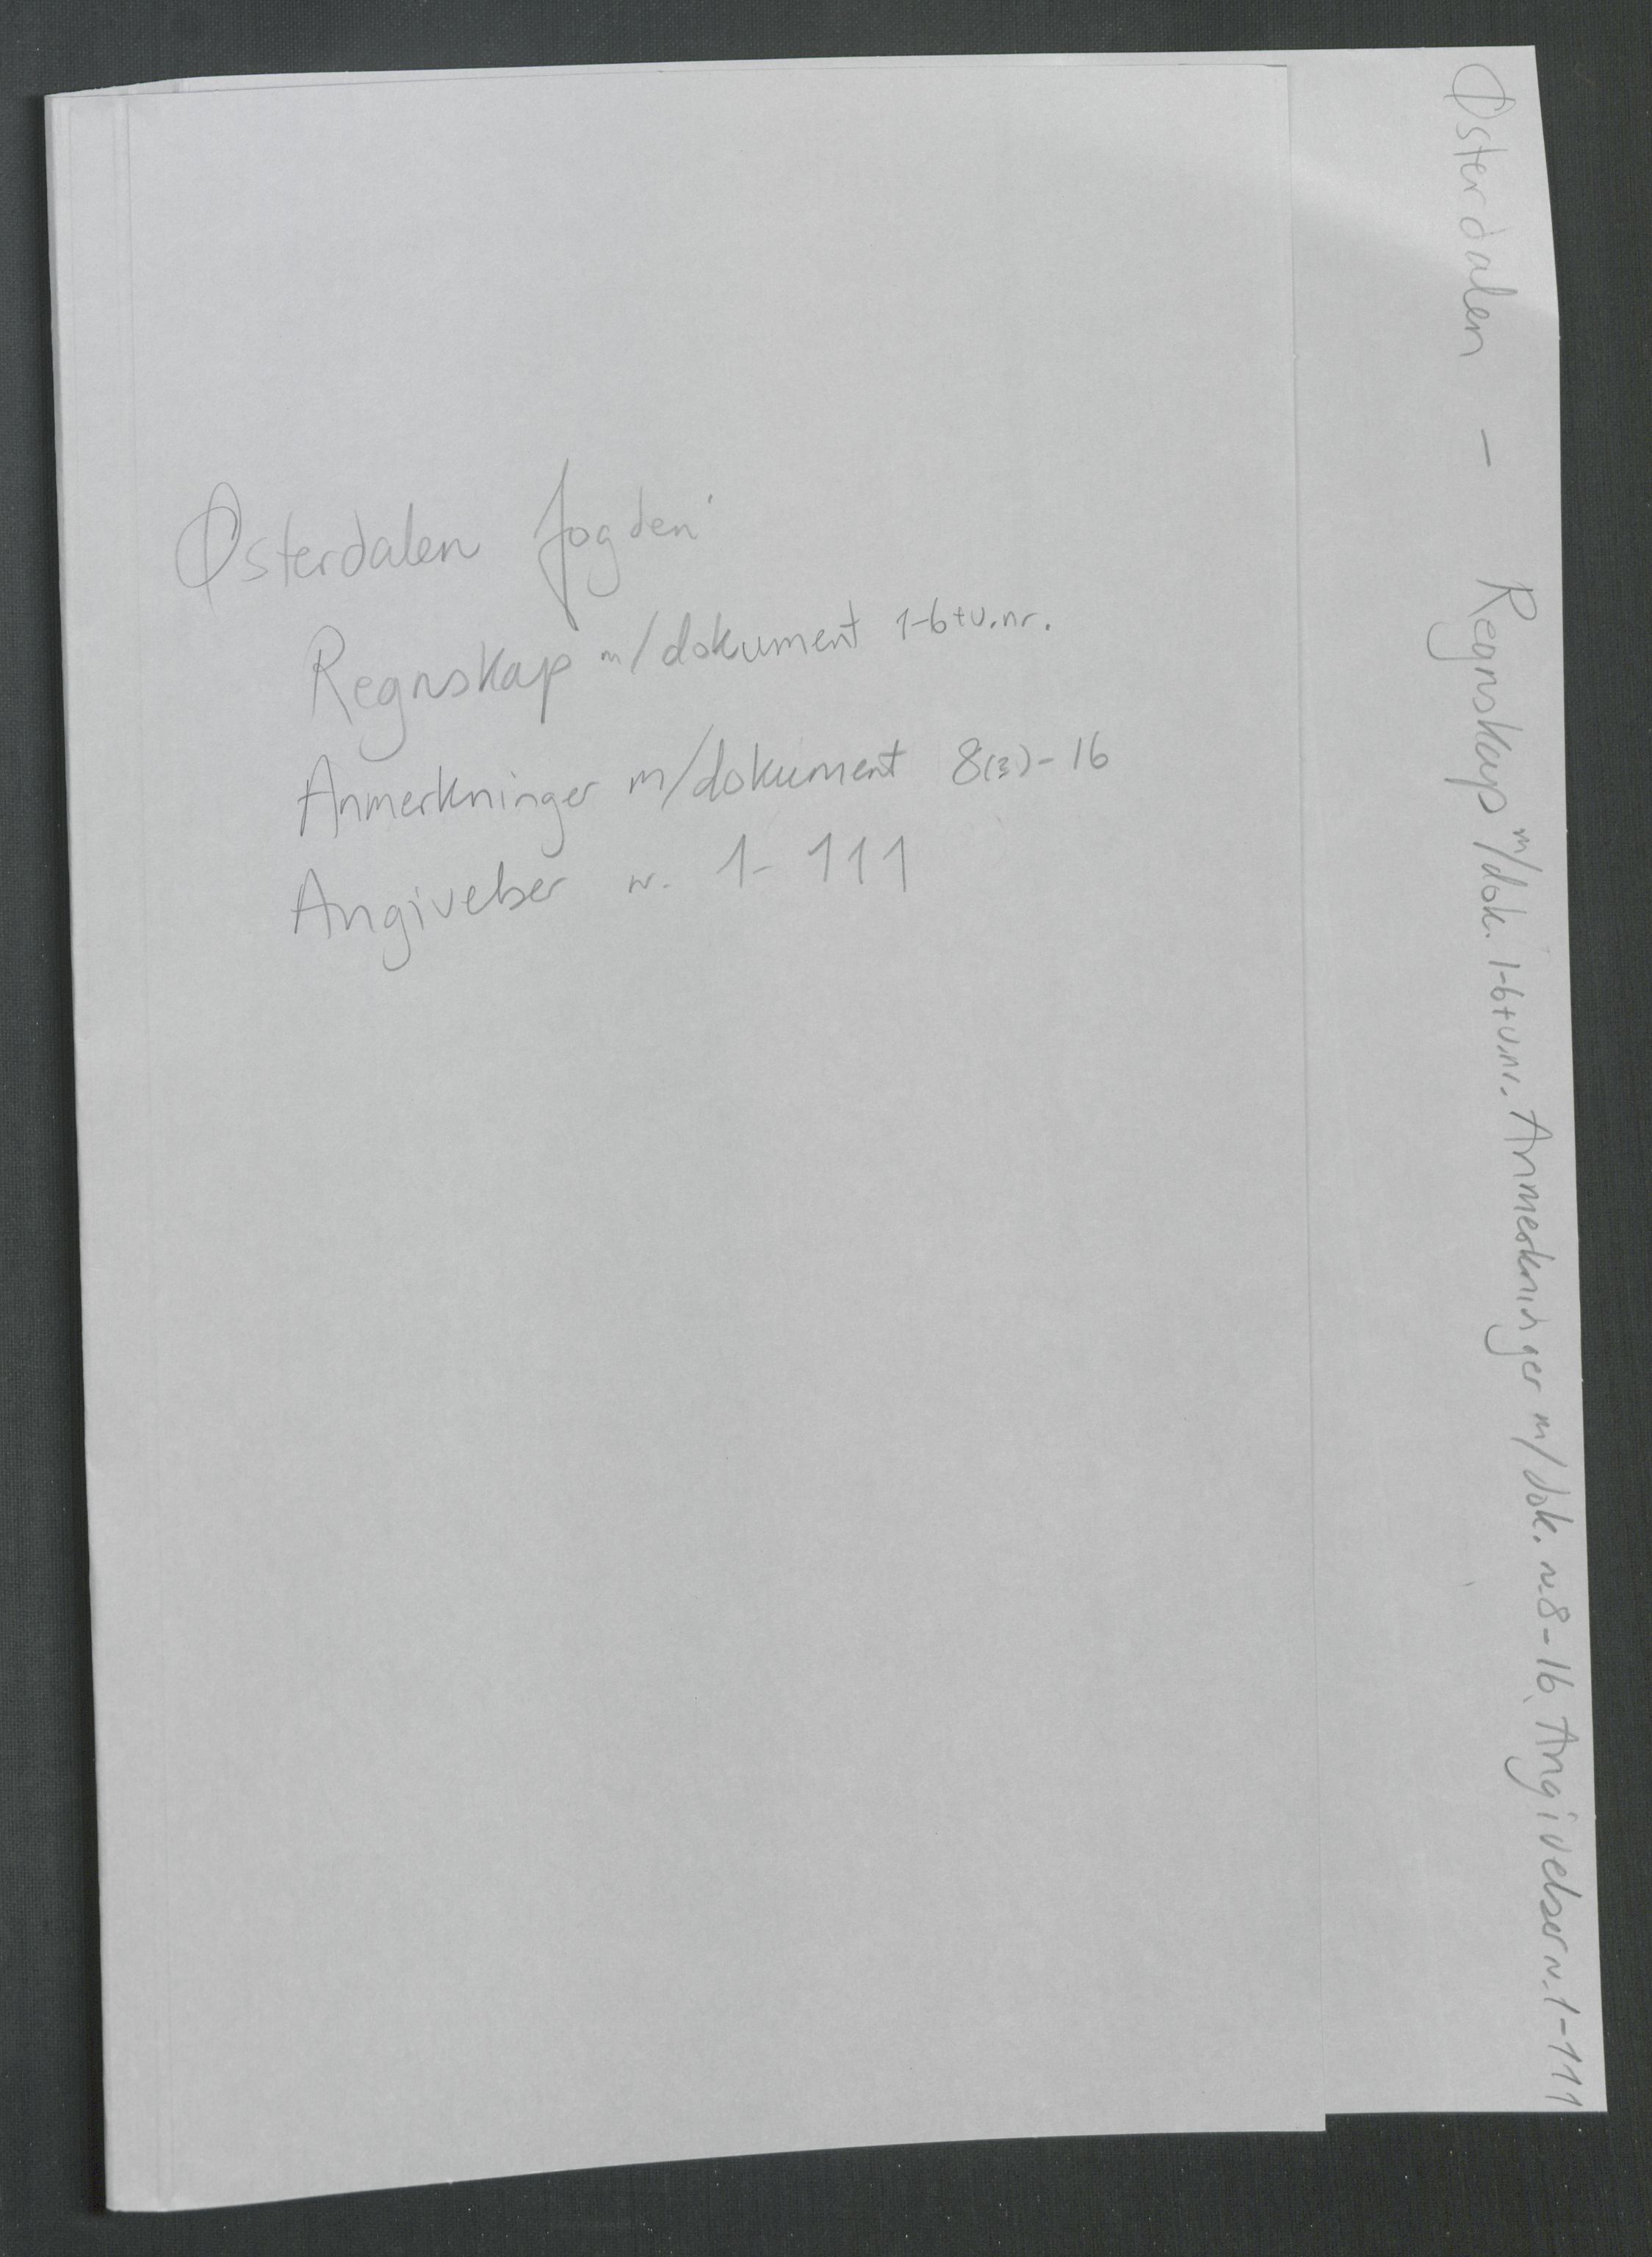 Østerdalen fogden
Regnskap m/dokument 1-6+u.nr.
Anmerkninger m/dokument 8(3)-16
Angivelser nr. 1-111
Østerdalen - Regnskap m/dok. 1-6+u.nr. Anmerkninger m/dok. nr. 8-16, Angivelser nr. 1-111